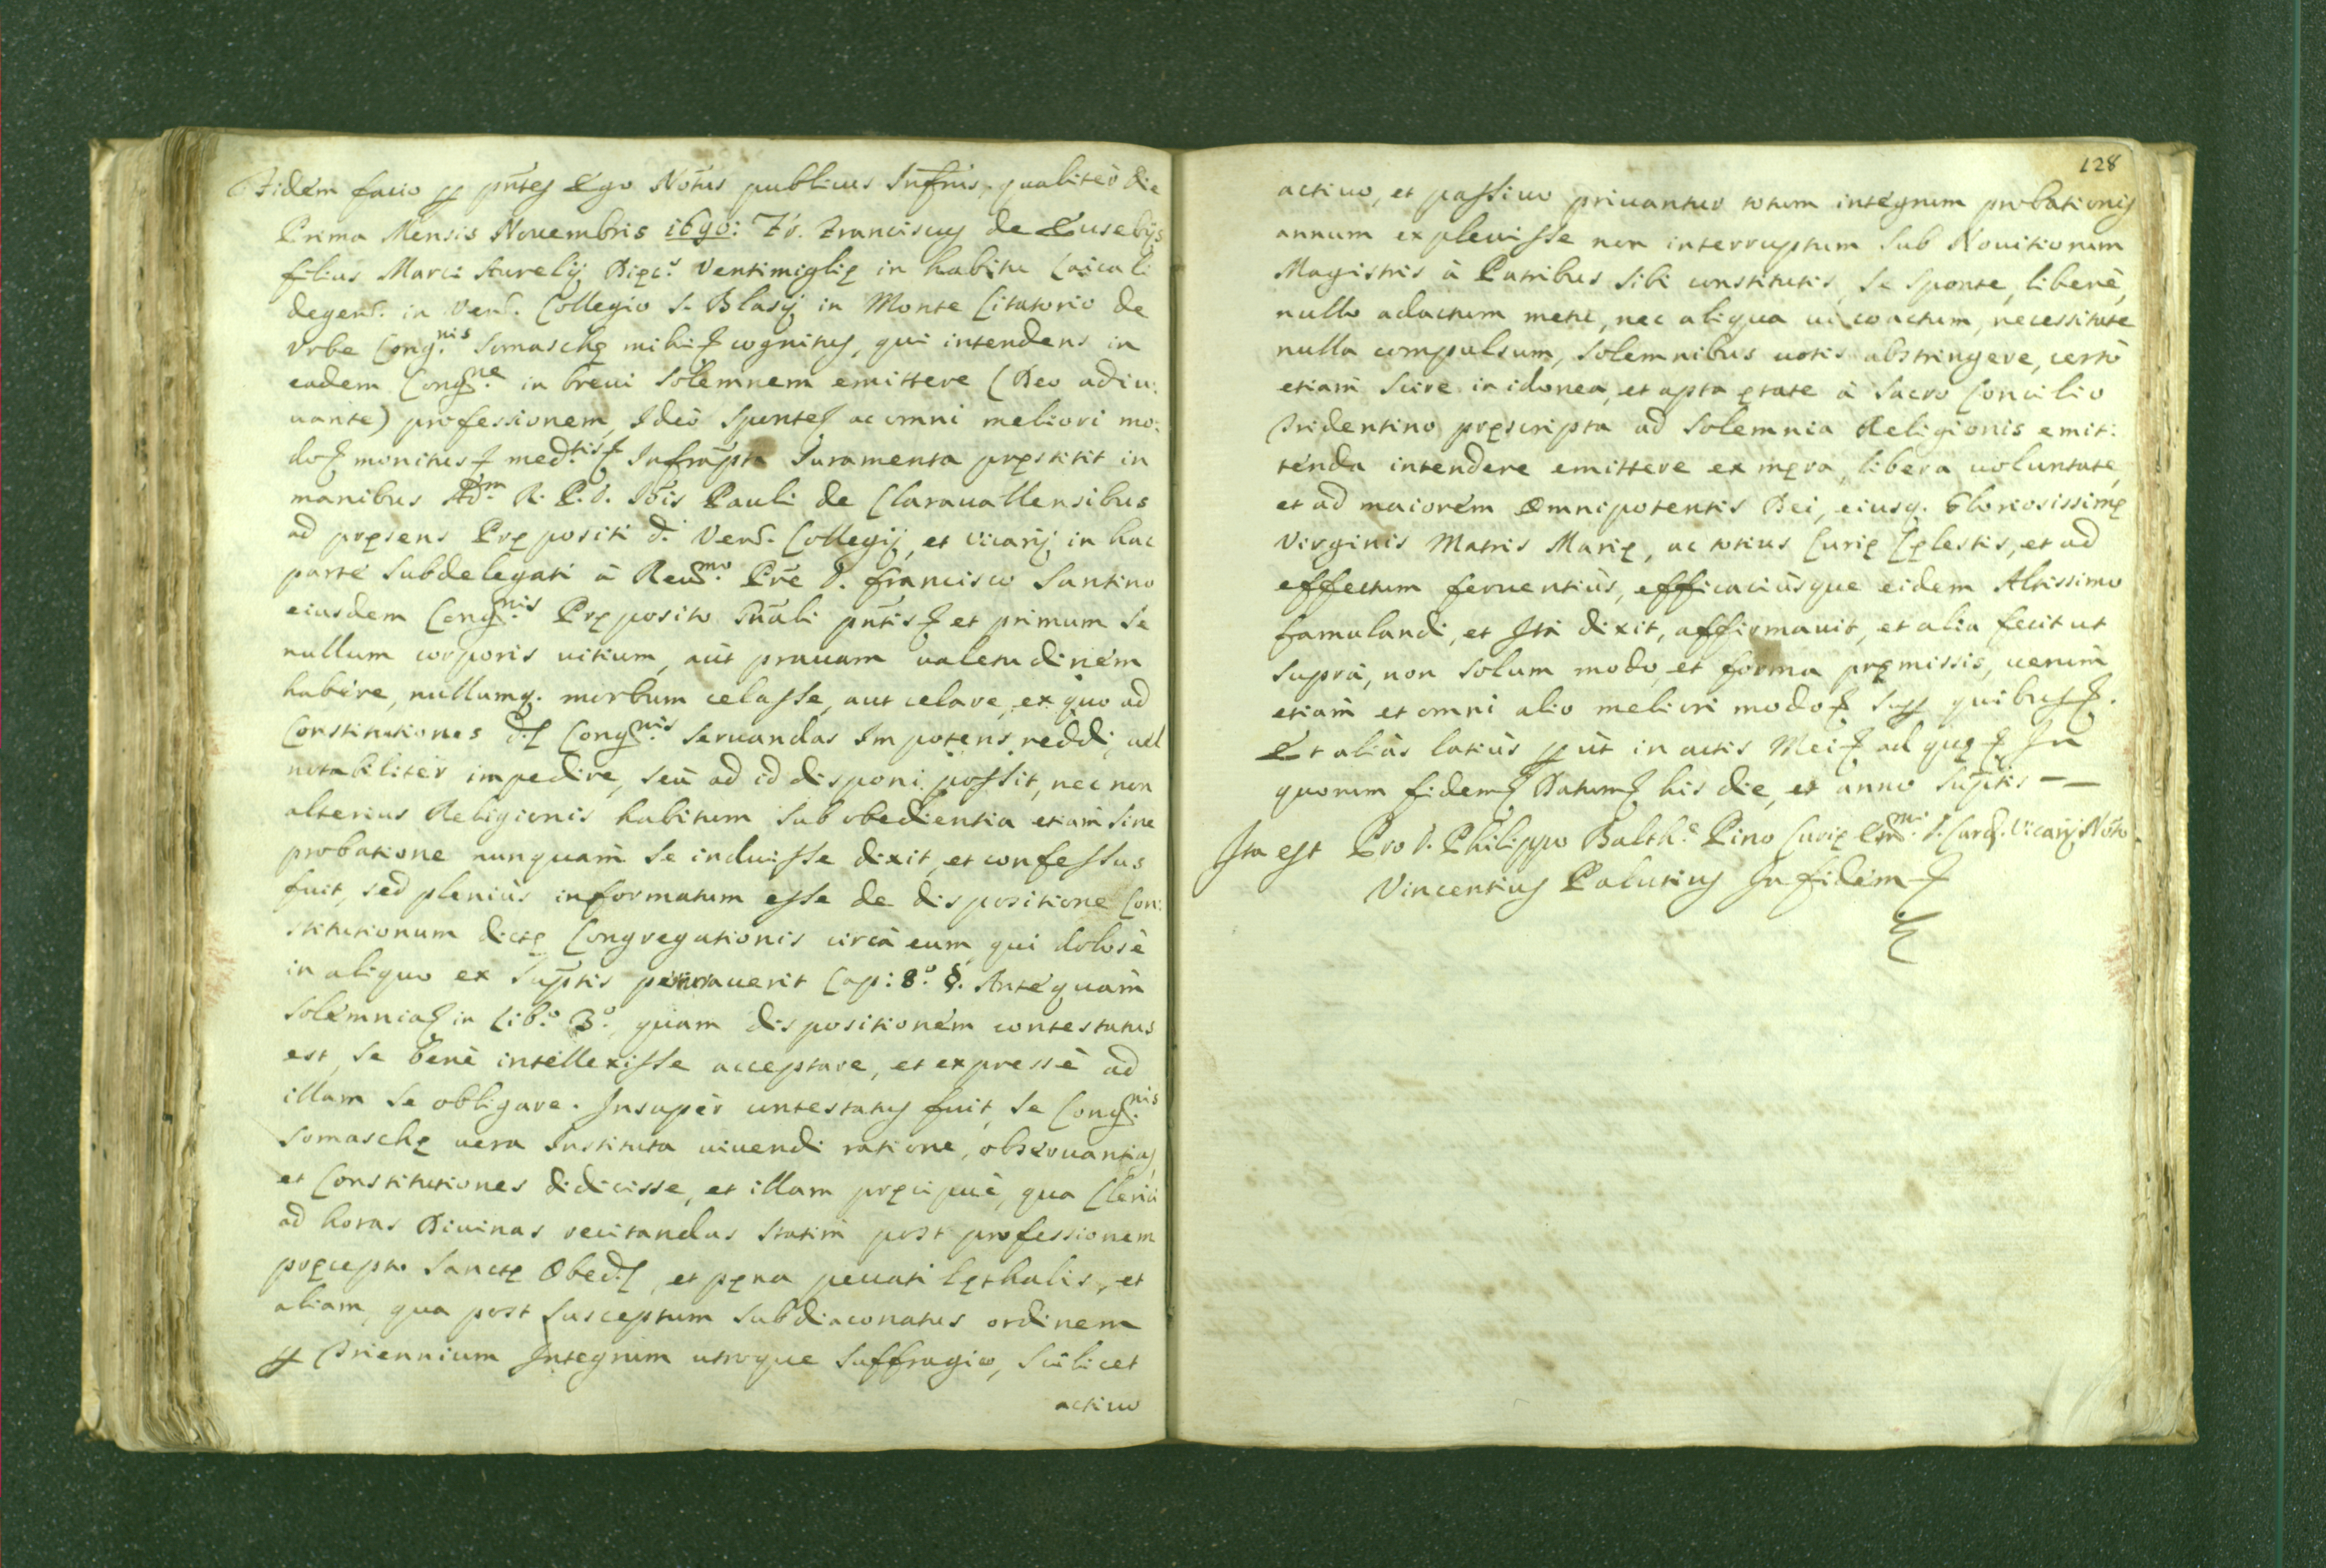 Fidem facio ꝑ pñtes Ego Notũs publicus Infrũs, qualiter die
Prima Mensis Nouembris 1690: Fr. Franciscus de Eusebijs
filius Marci Aurelij Diȩc.s Ventimiglię in habitu Laicali
degens. in Ven. Collegio S. Blasij in Monte Citatorio de
Vrbe Cong.nis Somaschę mihi cognitus, qui intendens in
eadem Cong.ne in breui Solemnem emittere (Deo adiu:
uante) professionem, Ideò Sponte ac omni meliori mo:
do monitus med.tis Infrap̃ta Iuramenta pręstitit in
manibus Ad.m R. P. D. Iõis Pauli de Clarauallensibus
ad pręsens Prępositi d. Ven. Collegij, et Vicarij in hac
parte Subdelegati à Reu.mo Prẽ D. Francisco Santino
eiusdem Cong.nis Pręposito Gñali pñtis et primum se
nullum corporis uitium, aut prauam ualetudinem
habere, nullumq. morbum celasse, aut celare, ex quo ad
Constitutiones d. Cong.nis Seruandas Impotens reddi, uel
notabiliter impedire, seù ad id disponi possit, nec non
alterius Religionis habitum sub obedientia etiam sine
probatione nunquam se induisse dixit, et confessus
fuit, sed plenius informatum esse de dispositione Con:
stitutionum dictę Congregationis circà eum, qui dolosè
in aliquo ex Sup̃tis peccauerit Cap: 8.° §. Antequam
Solemnia in Lib.° 3.° quam dispositionem contestatus
est, se benè intellexisse acceptare, et expressè ad
illam se obligare. Insuper contestatus fuit, se Cong.nis
Somaschę uera Instituta uiuendi ratione, obseruantias,
et Constitutiones didicisse, et illam pręcipuè, qua Clerici
ad horas Diuinas recitandas statim post professionem
pręcepto Sanctę Obed., et pęna peccati lęthalis, et
aliam, qua post susceptum Subdiaconatus ordinem
ꝑ Triennium Integrum utroque Suffragio, Scilicet
actiuo
128
actiuo, et passiuo priuantur totum integrum probationis
annum expleuisse non interruptum sub Nouitiorum
Magistris à Patribus sibi constitutis, se sponte, liberè,
nullo adactum metu, nec aliqua ui coactum, necessitate
nulla compulsum, Solemnibus uotis abstringere, certò
etiam scire in idonea, et apta ętate à Sacro Concilio
Tridentino pręscripta ad Solemnia Religionis emit:
tenda intendere emittere ex męra, libera uoluntate,
et ad maiorem Omnipotentis Dei, eiusq. Gloriosissimę
Virginis Matris Marię, ac totius Curię Cęlestis, et ad
effectum feruentiùs, efficaciùsque eidem Altissimo
famulandi, et Ità dixit, affirmauit, et alia fecit ut
suprà, non solum modo, et forma pręmissis, uerùm
etiam et omni alio meliori modo sup quibus.
Et aliàs latiùs ꝑut in actis Mei ad quę In
quorum fidem Datum his die, et anno Sup̃tis — —
Ita est Pro D. Philippo Balth.e Pino Curię Em.mi D. Card. Vicarij Noto
Vincentius Palutius In fidem